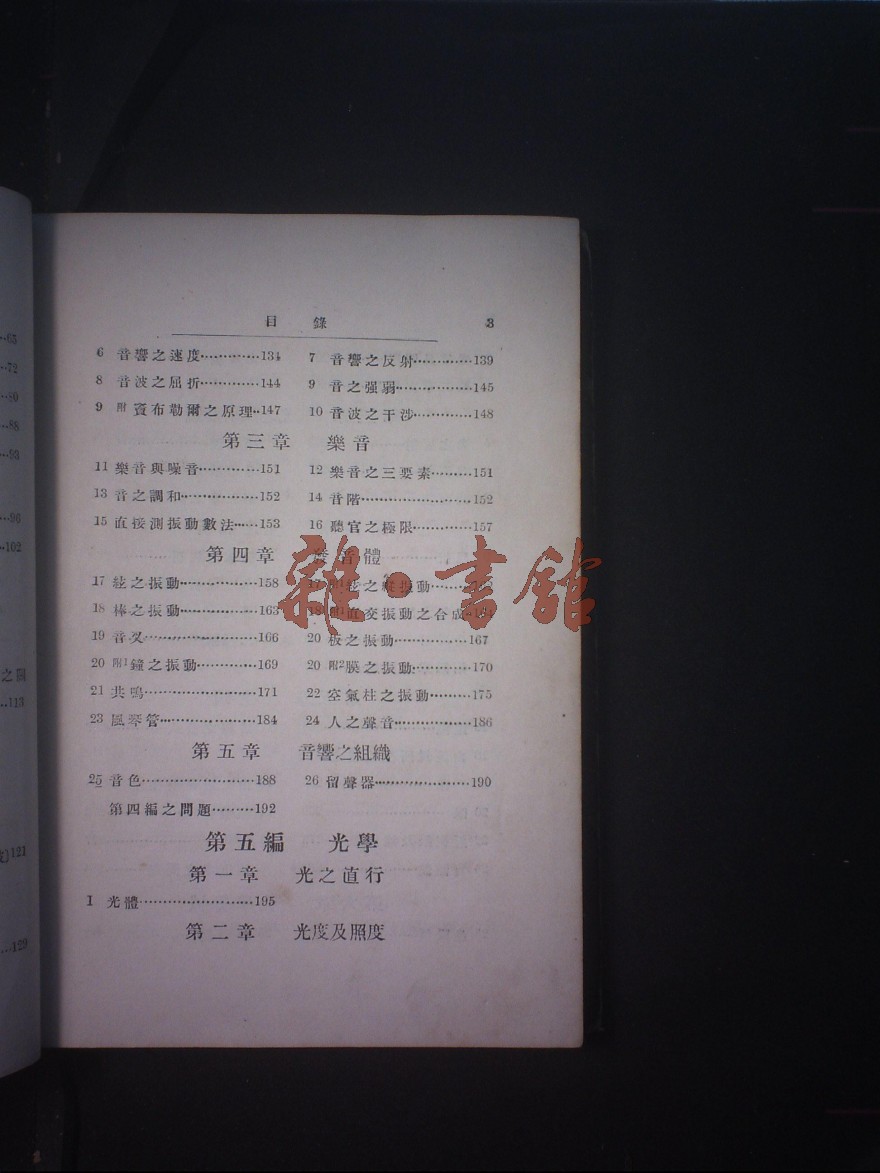 目錄 3
6 音響之速度·············134 7 音響之反射·············139
8 音波之屈折·············144 9 音之强弱·············145
9 附 賓布勒爾之原理··147 10 音波之干涉·············148
第三章 樂音
11 樂音與噪音·············151 12 樂音之三要素·············151
13 音之調和·············152 14 音階·············152
15 直接測振動數法······153 16 聽官之極限·············157
第四章 發音體
17 絃之振動·············158 之縱振動
18 棒之振動·············163 直交振動之合成
19 音叉·············166 20 板之振動·············167
20 附1 鐘之振動·············169 20 附2 膜之振動·············170
21 共鳴·············171 22 空氣柱之振動·············175
23 風琴管·············184 24 人之聲音·············186
第五章 音響之組織
25 音色·············188 26 留聲器·············190
第四編之問題·········192
第五編 光學
第一章 光之直行
1 光體·············195
第二章 光度及照度
雜·書館
63
72
80
88
93
96
102
113
121
129